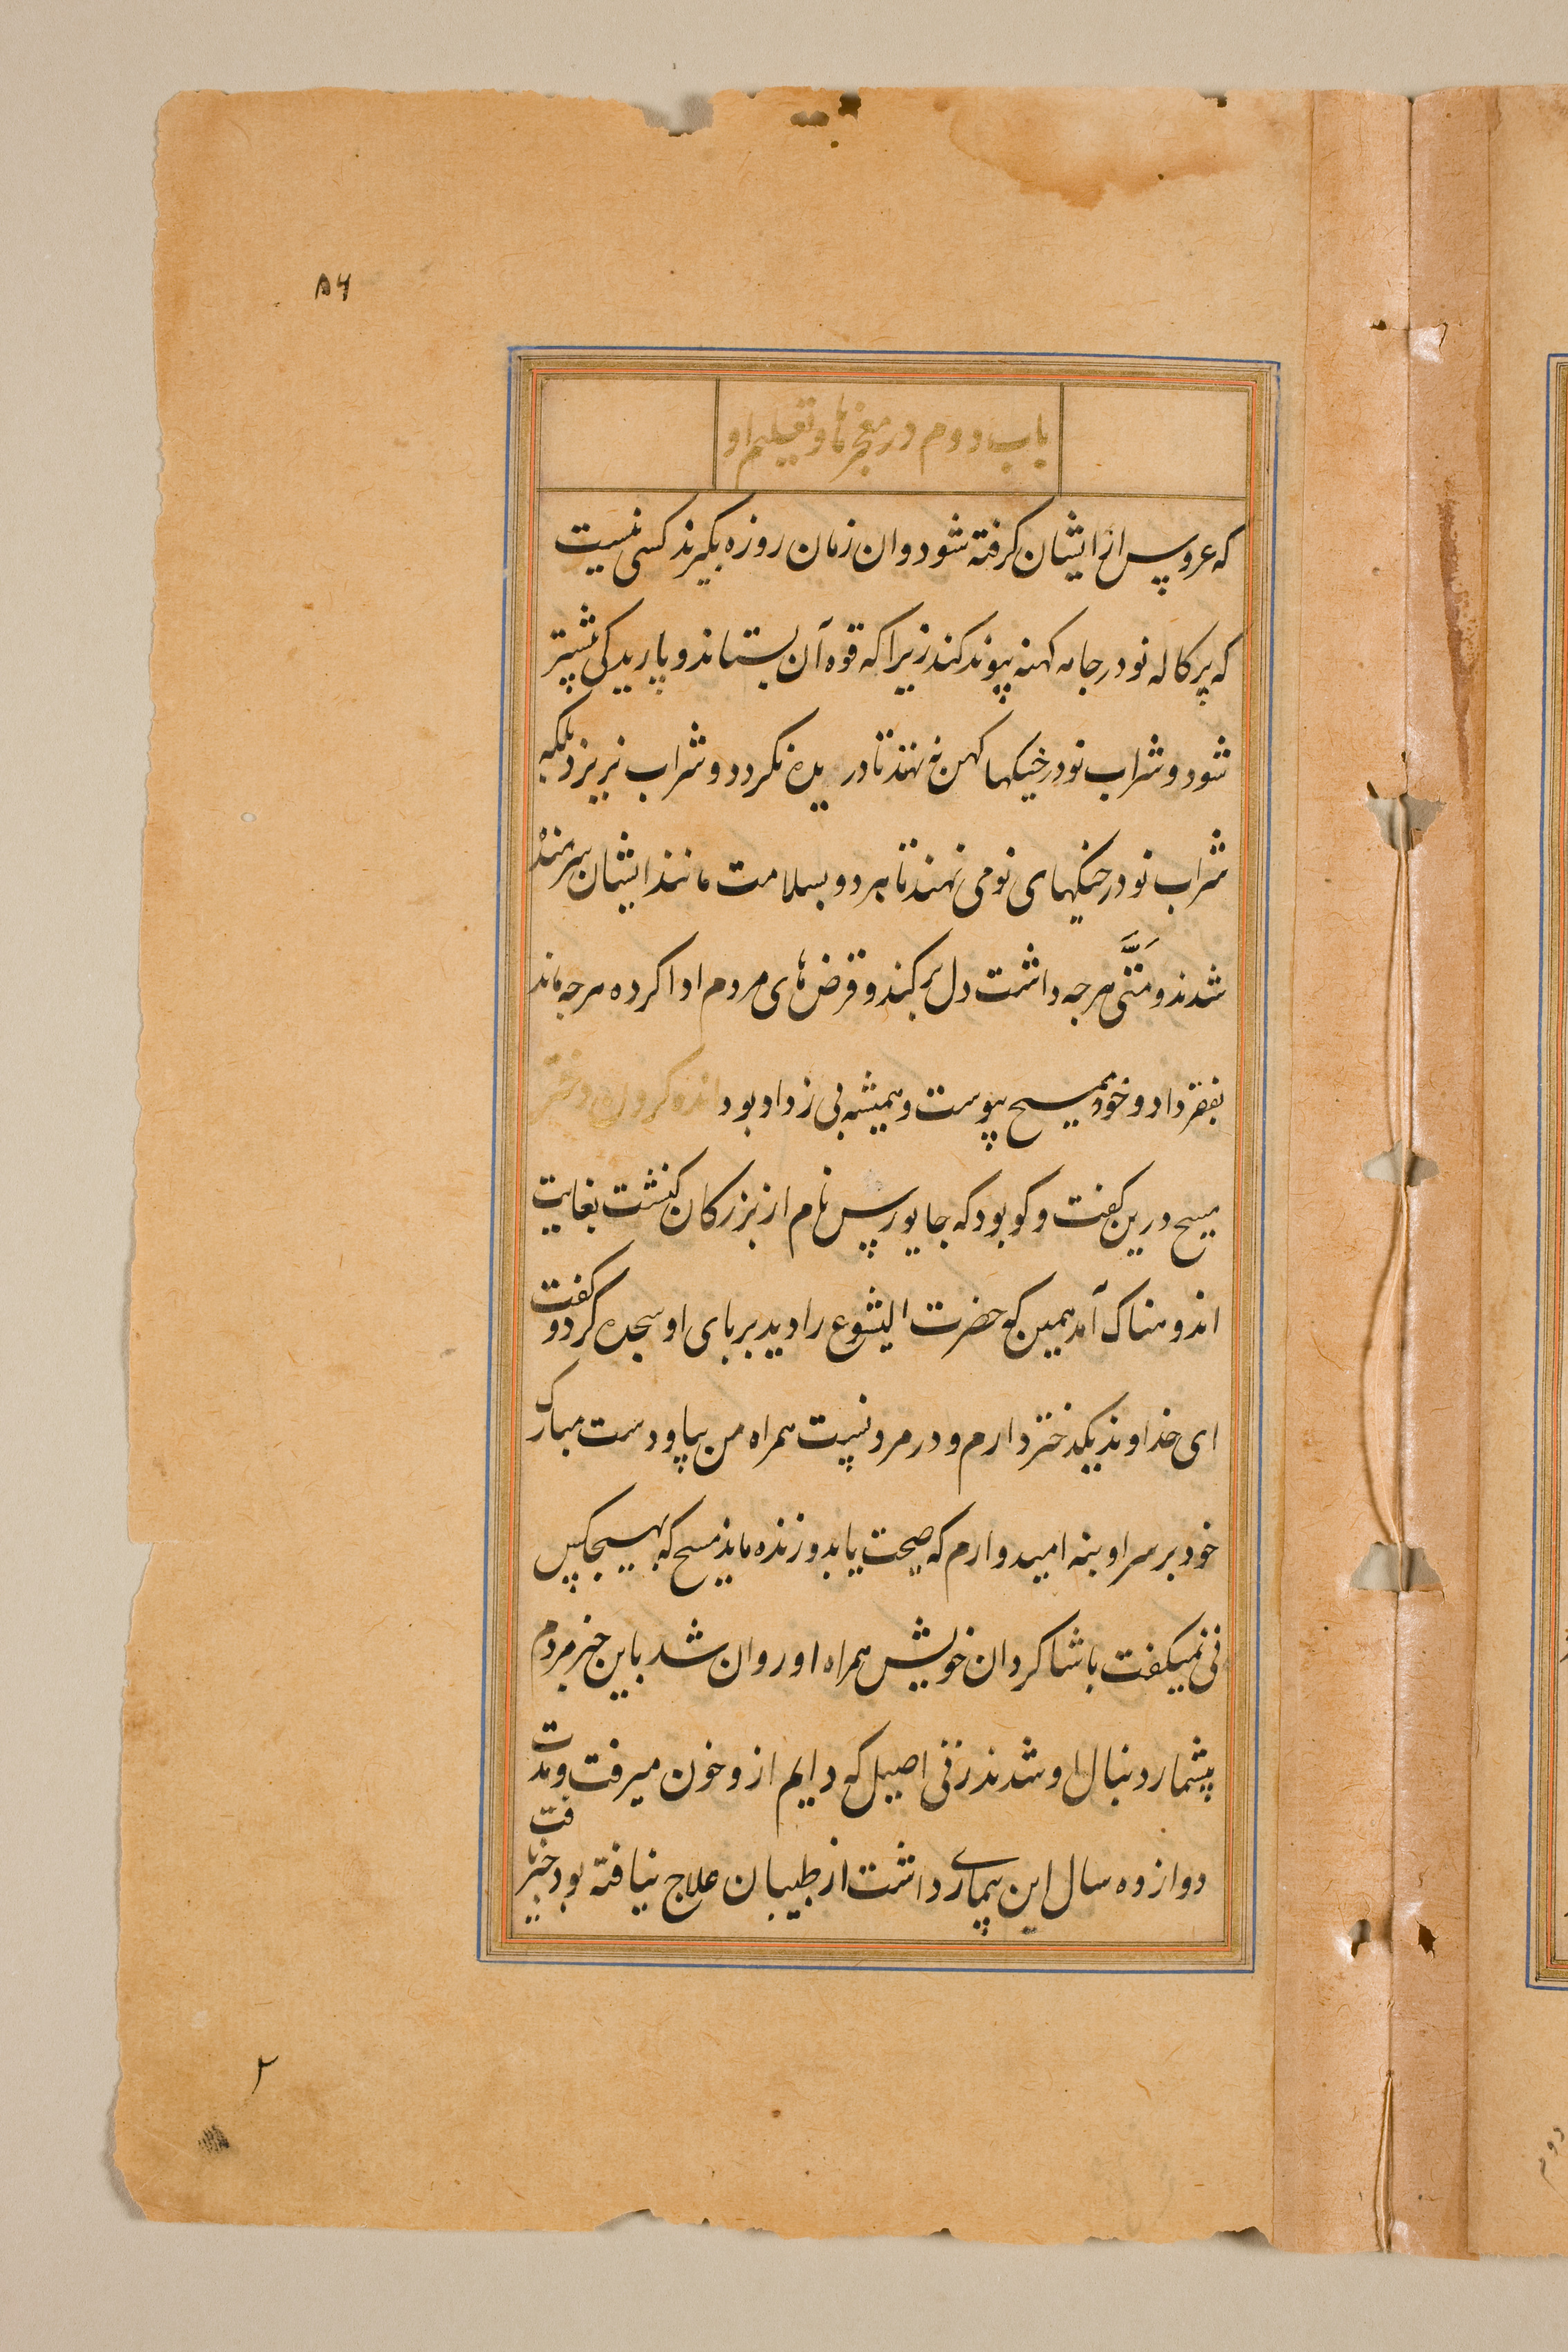 ۸۶
باب دوم در معجزها و تعلیم او
که عروس از ایشان کرفته شود و ان زمان روزه بکیرند کسی نیست
که پرکاله نو در جامه کهنه پیوند کند زیرا که قوه آن بستاند و پاریدکی بیشتر
شود و شراب نو در خیکها کهن نه نهند تا دریده نکردد و شراب نریزد بلکه
شراب نو در خیکهای نو می نهند تا هر دو بسلامت مانند ایشان شرمنده
شدند و مَتَّی هرچه داشت دل بر کند و قرض های مردم ادا کرده هرچه ماند
بفقرا داد و خود بمسیح پیوست و همیشه بی زاد بود زنده کردن دختر
مسیح درین کفت و کو بود که جایورس نام از بزرکان کنشت بغایت
اندوهناک آمد همین که حضرت ایشوع را دید بر پای او سجده کرد و کفت
ای خداوند یکدختر دارم و در مردنیست همراه من بیا و دست مبارک
خود بر سر او بنه امیدوارم که صحت یابد و زنده ماند مسیح که بهیچکس
نی نمیکفت با شاکردان خویش همراه او روان شد باین خبر مردم
بیشمار دنبال او شدند زنی اصیل که دایم ازو خون میرفت و مدت
دوازده سال این بیماری داشت از طبیبان علاج نیافته بود خبر یافت
۲
دوم